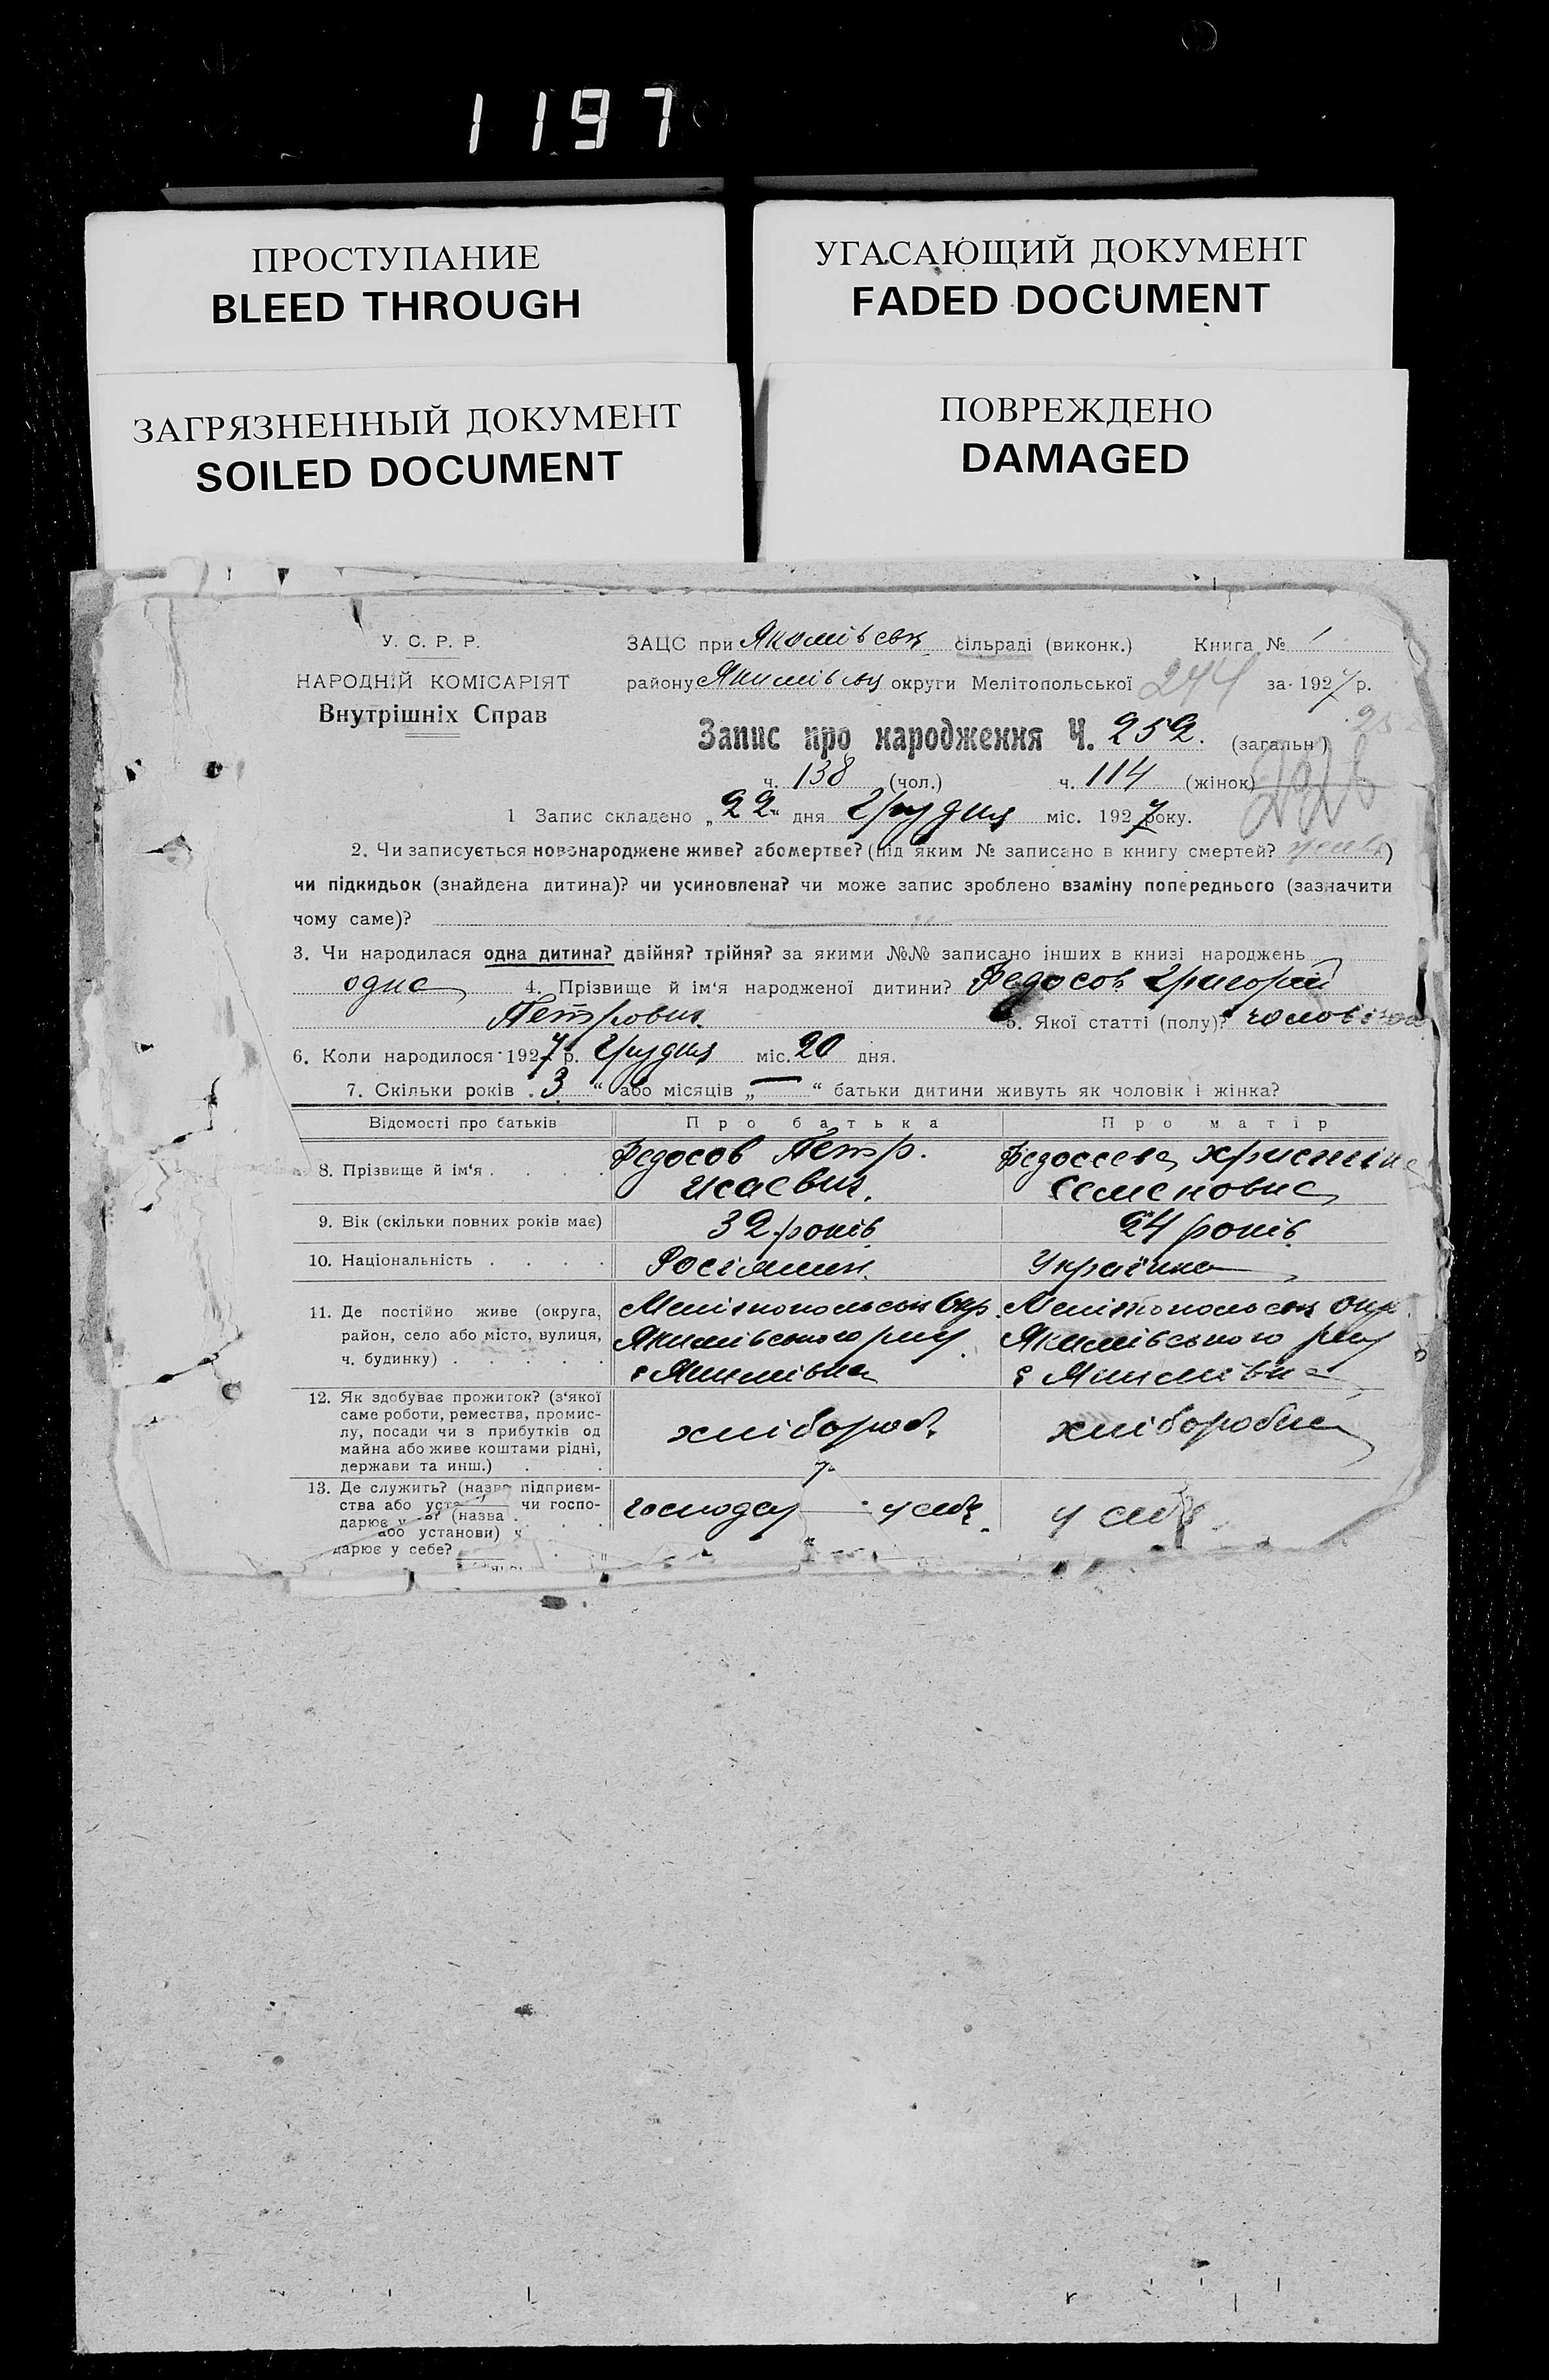 1197
ПРОСТУПАНИЕ
BLEED THROUGH
УГАСАЮЩИЙ ДОКУМЕНТ
FADED DOCUMENT
ЗАГРЯЗНЕННЫЙ ДОКУМЕНТ
SOILED DOCUMENT
ПОВРЕЖДЕНО
DAMAGED
У. С. Р. Р.
НАРОДНІЙ КОМІСАРІЯТ
Внутрішніх Справ
ЗАЦС при сільраді (виконк.) Книга № 1
району округи Мелітопольської 244 за 1927 р.
Запис про народження Ч. 252. (загальн)
ч. 138 (чол.) ч. 114 (жінок)
1 Запис складено „22“ дня Грудня міс. 1927 року.
2. Чи записується новонароджене живе? або мертве? (під яким № записано в книгу смертей? живе)
чи підкидьок (знайдена дитина)? чи усиновлена? чи може запис зроблено взаміну попереднього (зазначити
чому саме)?
3. Чи народилася одна дитина? двійня? трійня? за якими №№ записано інших в книзі народжень
одна 4. Прізвище й ім'я народженої дитини? Федосов Григорій
Петрович 5. Якої статті (полу)?
6. Коли народилося 1927 р. Грудня міс. 20 дня.
7. Скільки років „3“ або місяців „—“ батьки дитини живуть як чоловік і жінка?
Відомості про батьків Про батька Про матір
8. Прізвище й ім'я . . . . Федосов Петр. Исаевич. Христина Семеновна
9. Вік (скільки повних років має) 32 років 24 років
10. Національність . . . . Росіянин. Українка
11. Де постійно живе (округа,
район, село або місто, вулиця,
ч. будинку) . . . . .
Мелітопольськ Окр.
Якимівського р-ну
с Якимівка
Мелітопольськ Окр.
Якимівського р-ну
с Якимівка
12. Як здобуває прожиток? (з'якої
саме роботи, ремества, промис-
лу, посади чи з прибутків од
майна або живе коштами рідні,
держави та инш.) . .
хлібороб.
хліборобка
13. Де служить? (назва підприєм-
ства або чи госпо-
дарює (назва
або установи)
дарює у себе?
господар у себе
у себе